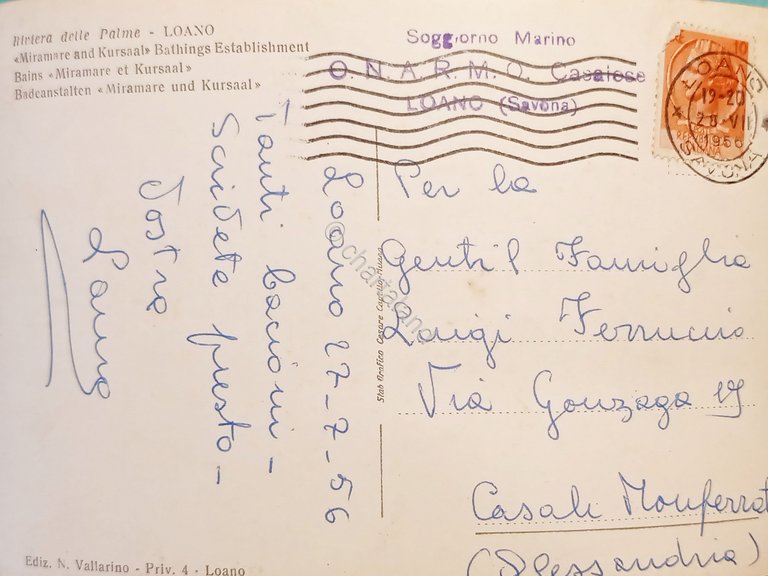 Riviera delle Palme - LOANO
«Miramare and Kursaal» Bathings Establishment
Bains «Miramare et Kursaal»
Badeanstalten «Miramare und Kursaal»
Soggiorno Marino
O. N. A. R. M. O. Casalese
LOANO (Savona)
10
LOANO
19-20
28-VII
1956
SAVONA
Loano 27-7-56
Tanti bacioni -
Scivete presto -
Vostra
Laura
Per la
Gentil Famiglia
Luigi Ferruccio
Via Gonzaga 19
Casale Monferrat
(Alessandria)
Stab Grafico Cesare Capello
© chartaland
Ediz. N. Vallarino - Priv. 4 - Loano